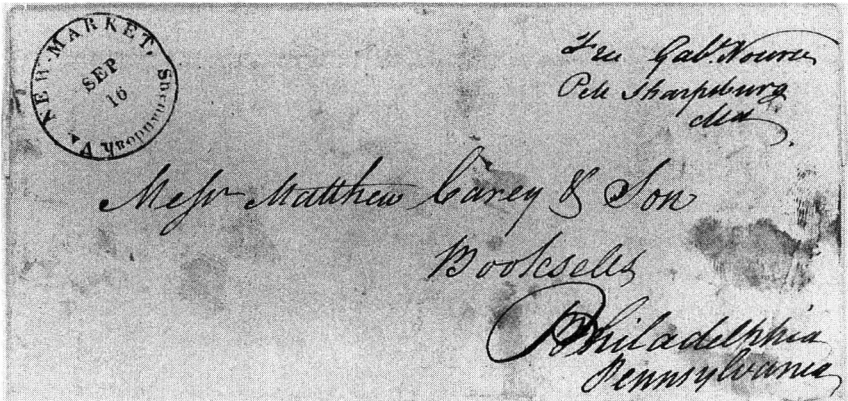 NEW-MARKET, Shenandoah Va
SEP
16
Free Gabl. Nourse
PM Sharpsburg
Md
Messrs Matthew Carey & Son
Booksellers
Philadelphia
Pennsylvania